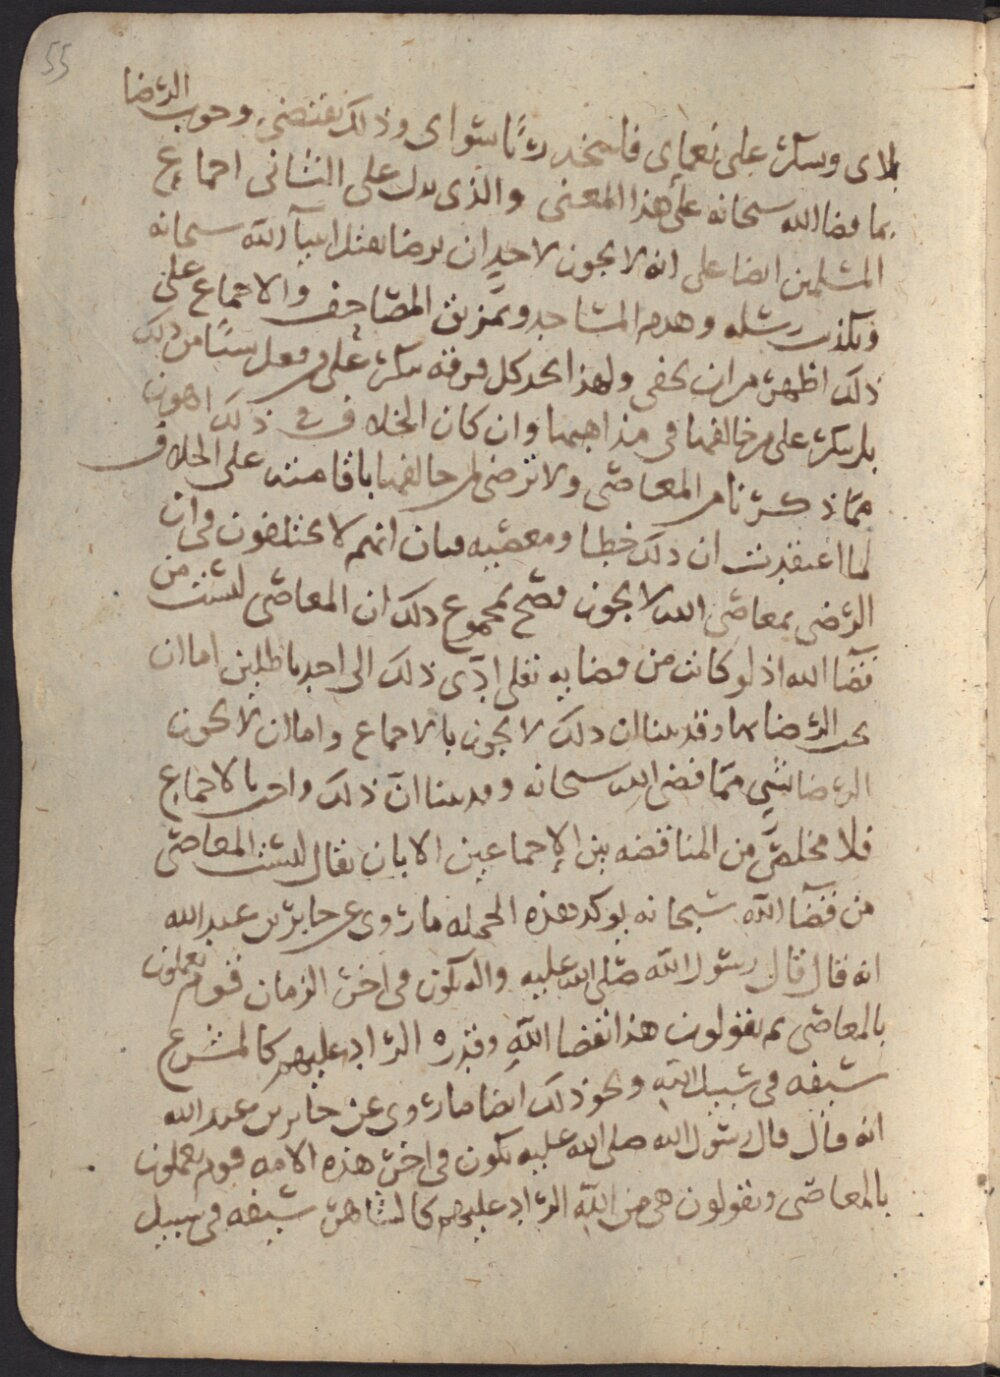 55
بلاى ويشكر على نعماى فليتخذ ربًا سواى وذلك يقتضى وجوب الرضا
بما قضا الله سبحانه على هذا المعنى والذى يدل على الثانى اجماع
المسلمين ايضا على انه لا يجوز لاحدٍ ان يرضا بقتل انبيآء الله سبحانه
وتكذيب رسله وهدم المساجد وتمزيق المصاحف والاجماع على
ذلك اظهر من ان يخفى ولهذا تجد كل فرقة تنكر على من فعل شيئًا من ذلك
بل تنكر على من خالفها فى مذاهبها وان كان الخلاف فى ذلك اهون
مما ذكرنا من المعاصى ولا ترضى لمن خالفها باقامته على الخلاف
لما اعتقدت ان ذلك خطا ومعصيه فبان انهم لا يختلفون فى ان
الرضى بمعاصى الله لا يجوز فصح بمجموع ذلك ان المعاصى ليست من
قضآء الله اذ لو كانت من قضايه تعلى ادّى ذلك الى احد باطلين اما ان
يجب الرضا بها وقد بينا ان ذلك لا يجوز بالاجماع واما ان لا يجوز
الرضا بشىٍ مما قضى الله سبحانه وقد بينا انّ ذلك واجب بالاجماع
فلا مخلص من المناقضه بين الإجماعين الا بان يقال ليست المعاصى
من قضآء الله سبحانه يوكد هذه الجمله ما روى عن جابر بن عبد الله
انه قال قال رسول الله صلى الله عليه واله يكون فى اخر الزمان قوم يعملون
بالمعاصى ثم يقولون هذا بقضا الله وقدره الراد عليهم كالمشرع
سيفه فى سبيل الله ونحو ذلك ايضا ما روى عن جابر بن عبد الله
انه قال قال رسول الله صلى الله عليه يكون فى اخر هذه الامه قوم يعملون
بالمعاصى ويقولون هى من الله الراد عليهم كالشاهر سيفه فى سبيل